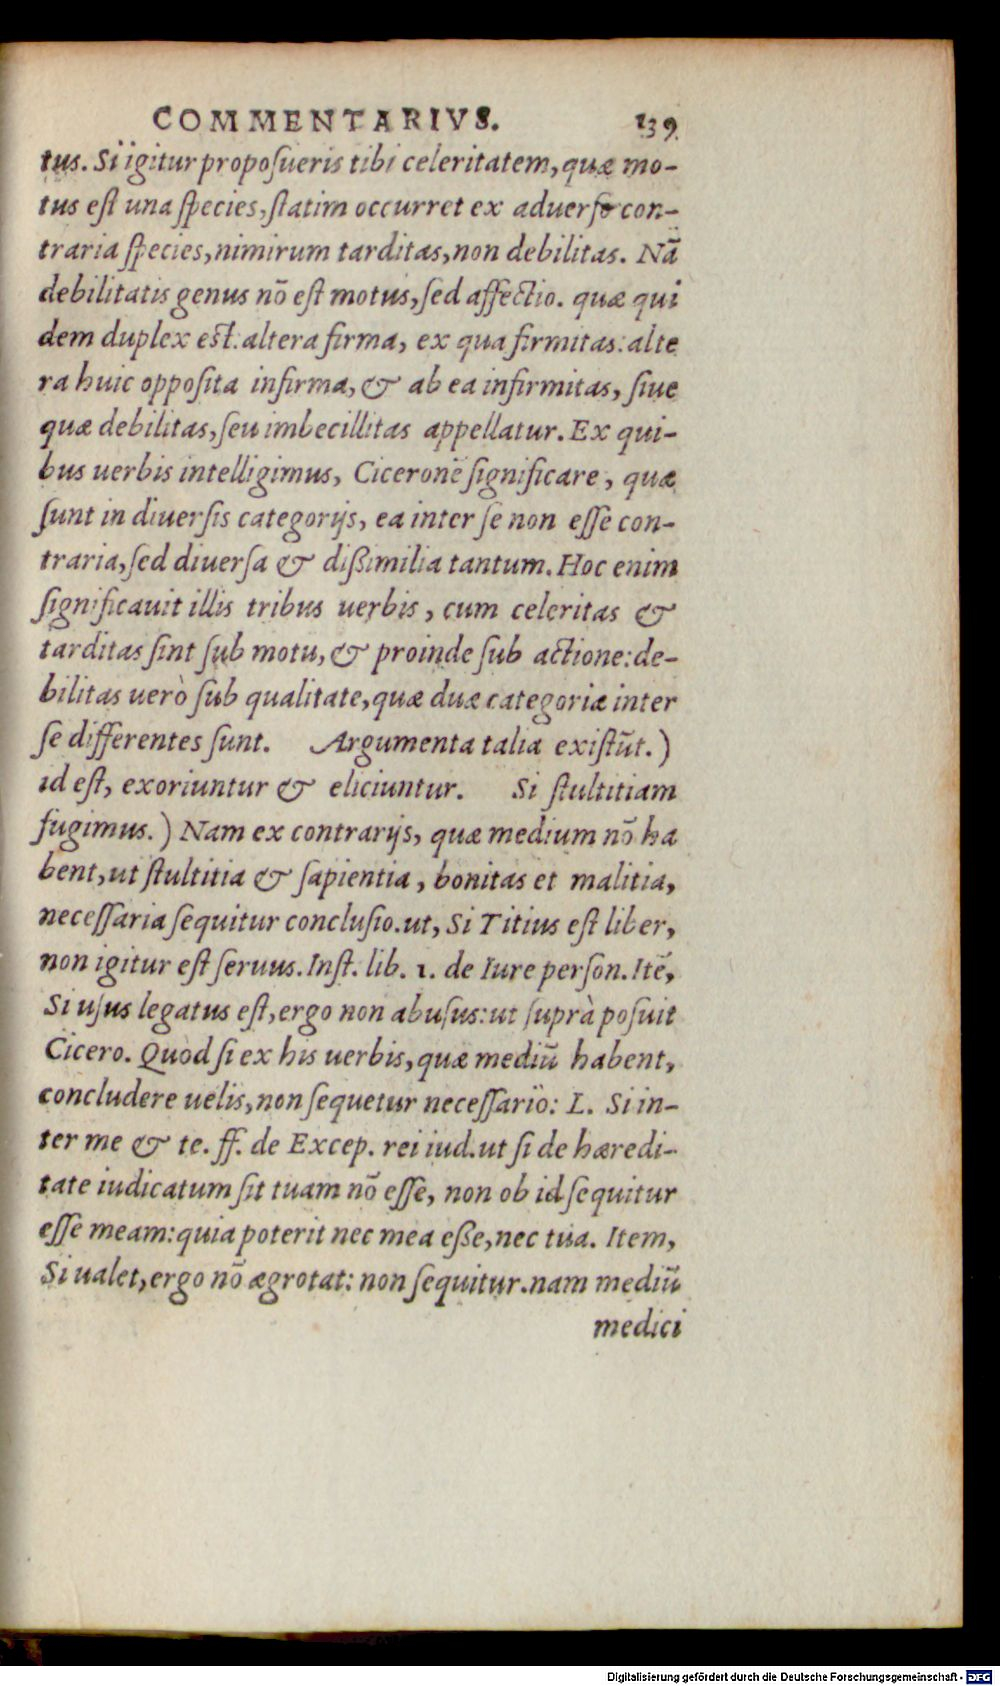 COMMENTARIVS. 139
tus. Si igitur proposueris tibi celeritatem, quæ mo-
tus est una species, statim occurret ex aduerso con-
traria species, nimirum tarditas, non debilitas. Nā
debilitatis genus nō est motus, sed affectio. quæ qui
dem duplex est: altera firma, ex qua firmitas: alte
ra huic opposita infirma, & ab ea infirmitas, siue
quæ debilitas, seu imbecillitas appellatur. Ex qui-
bus uerbis intelligimus, Ciceronē significare, quæ
sunt in diuersis categorijs, ea inter se non esse con-
traria, sed diuersa & dißimilia tantum. Hoc enim
significauit illis tribus uerbis, cum celeritas &
tarditas sint sub motu, & proinde sub actione: de-
bilitas uerò sub qualitate, quæ duæ categoriæ inter
se differentes sunt. Argumenta talia existūt.)
id est, exoriuntur & eliciuntur. Si stultitiam
fugimus.) Nam ex contrarijs, quæ medium nō ha
bent, ut stultitia & sapientia, bonitas et malitia,
necessaria sequitur conclusio. ut, Si Titius est liber,
non igitur est seruus. Inst. lib. 1. de Iure person. Itē,
Si usus legatus est, ergo non abusus: ut suprà posuit
Cicero. Quòd si ex his uerbis, quæ mediū habent,
concludere uelis, non sequetur necessariò: L. Si in-
ter me & te. ff. de Excep. rei iud. ut si de hæredi-
tate iudicatum sit tuam nō esse, non ob id sequitur
esse meam: quia poterit nec mea eße, nec tua. Item,
Si ualet, ergo nō ægrotat: non sequitur. nam mediū
medici
Digitalisierung gefördert durch die Deutsche Forschungsgemeinschaft - DFG